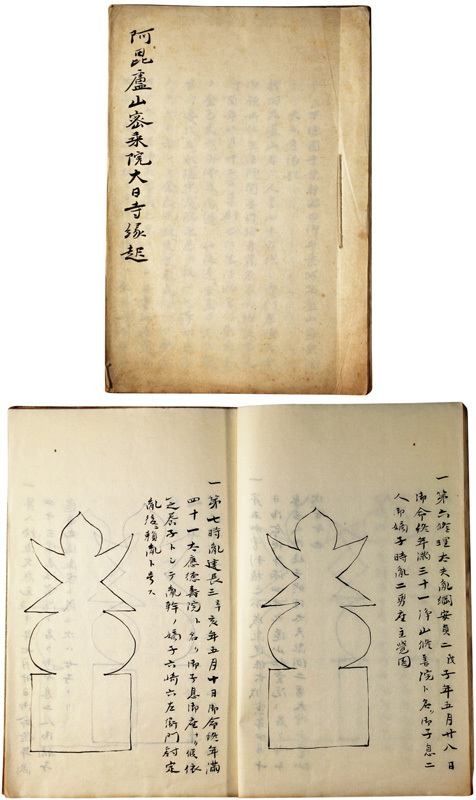 阿毘廬山密乗院大日寺縁起
一 第六修理太夫胤綱安貞二戊子年五月廿八日
御命終年満三十一浄山修善院ト名ク御子息二
人御嫡子時胤二男座主覚因
一 第七時胤建長三辛亥年五月十日御命終年満
四十一太應徳寿院ト名ク御子息御座候依
之 子トシテ胤幹ノ嫡子六崎六左衛門 定
胤後頼胤ト号ス